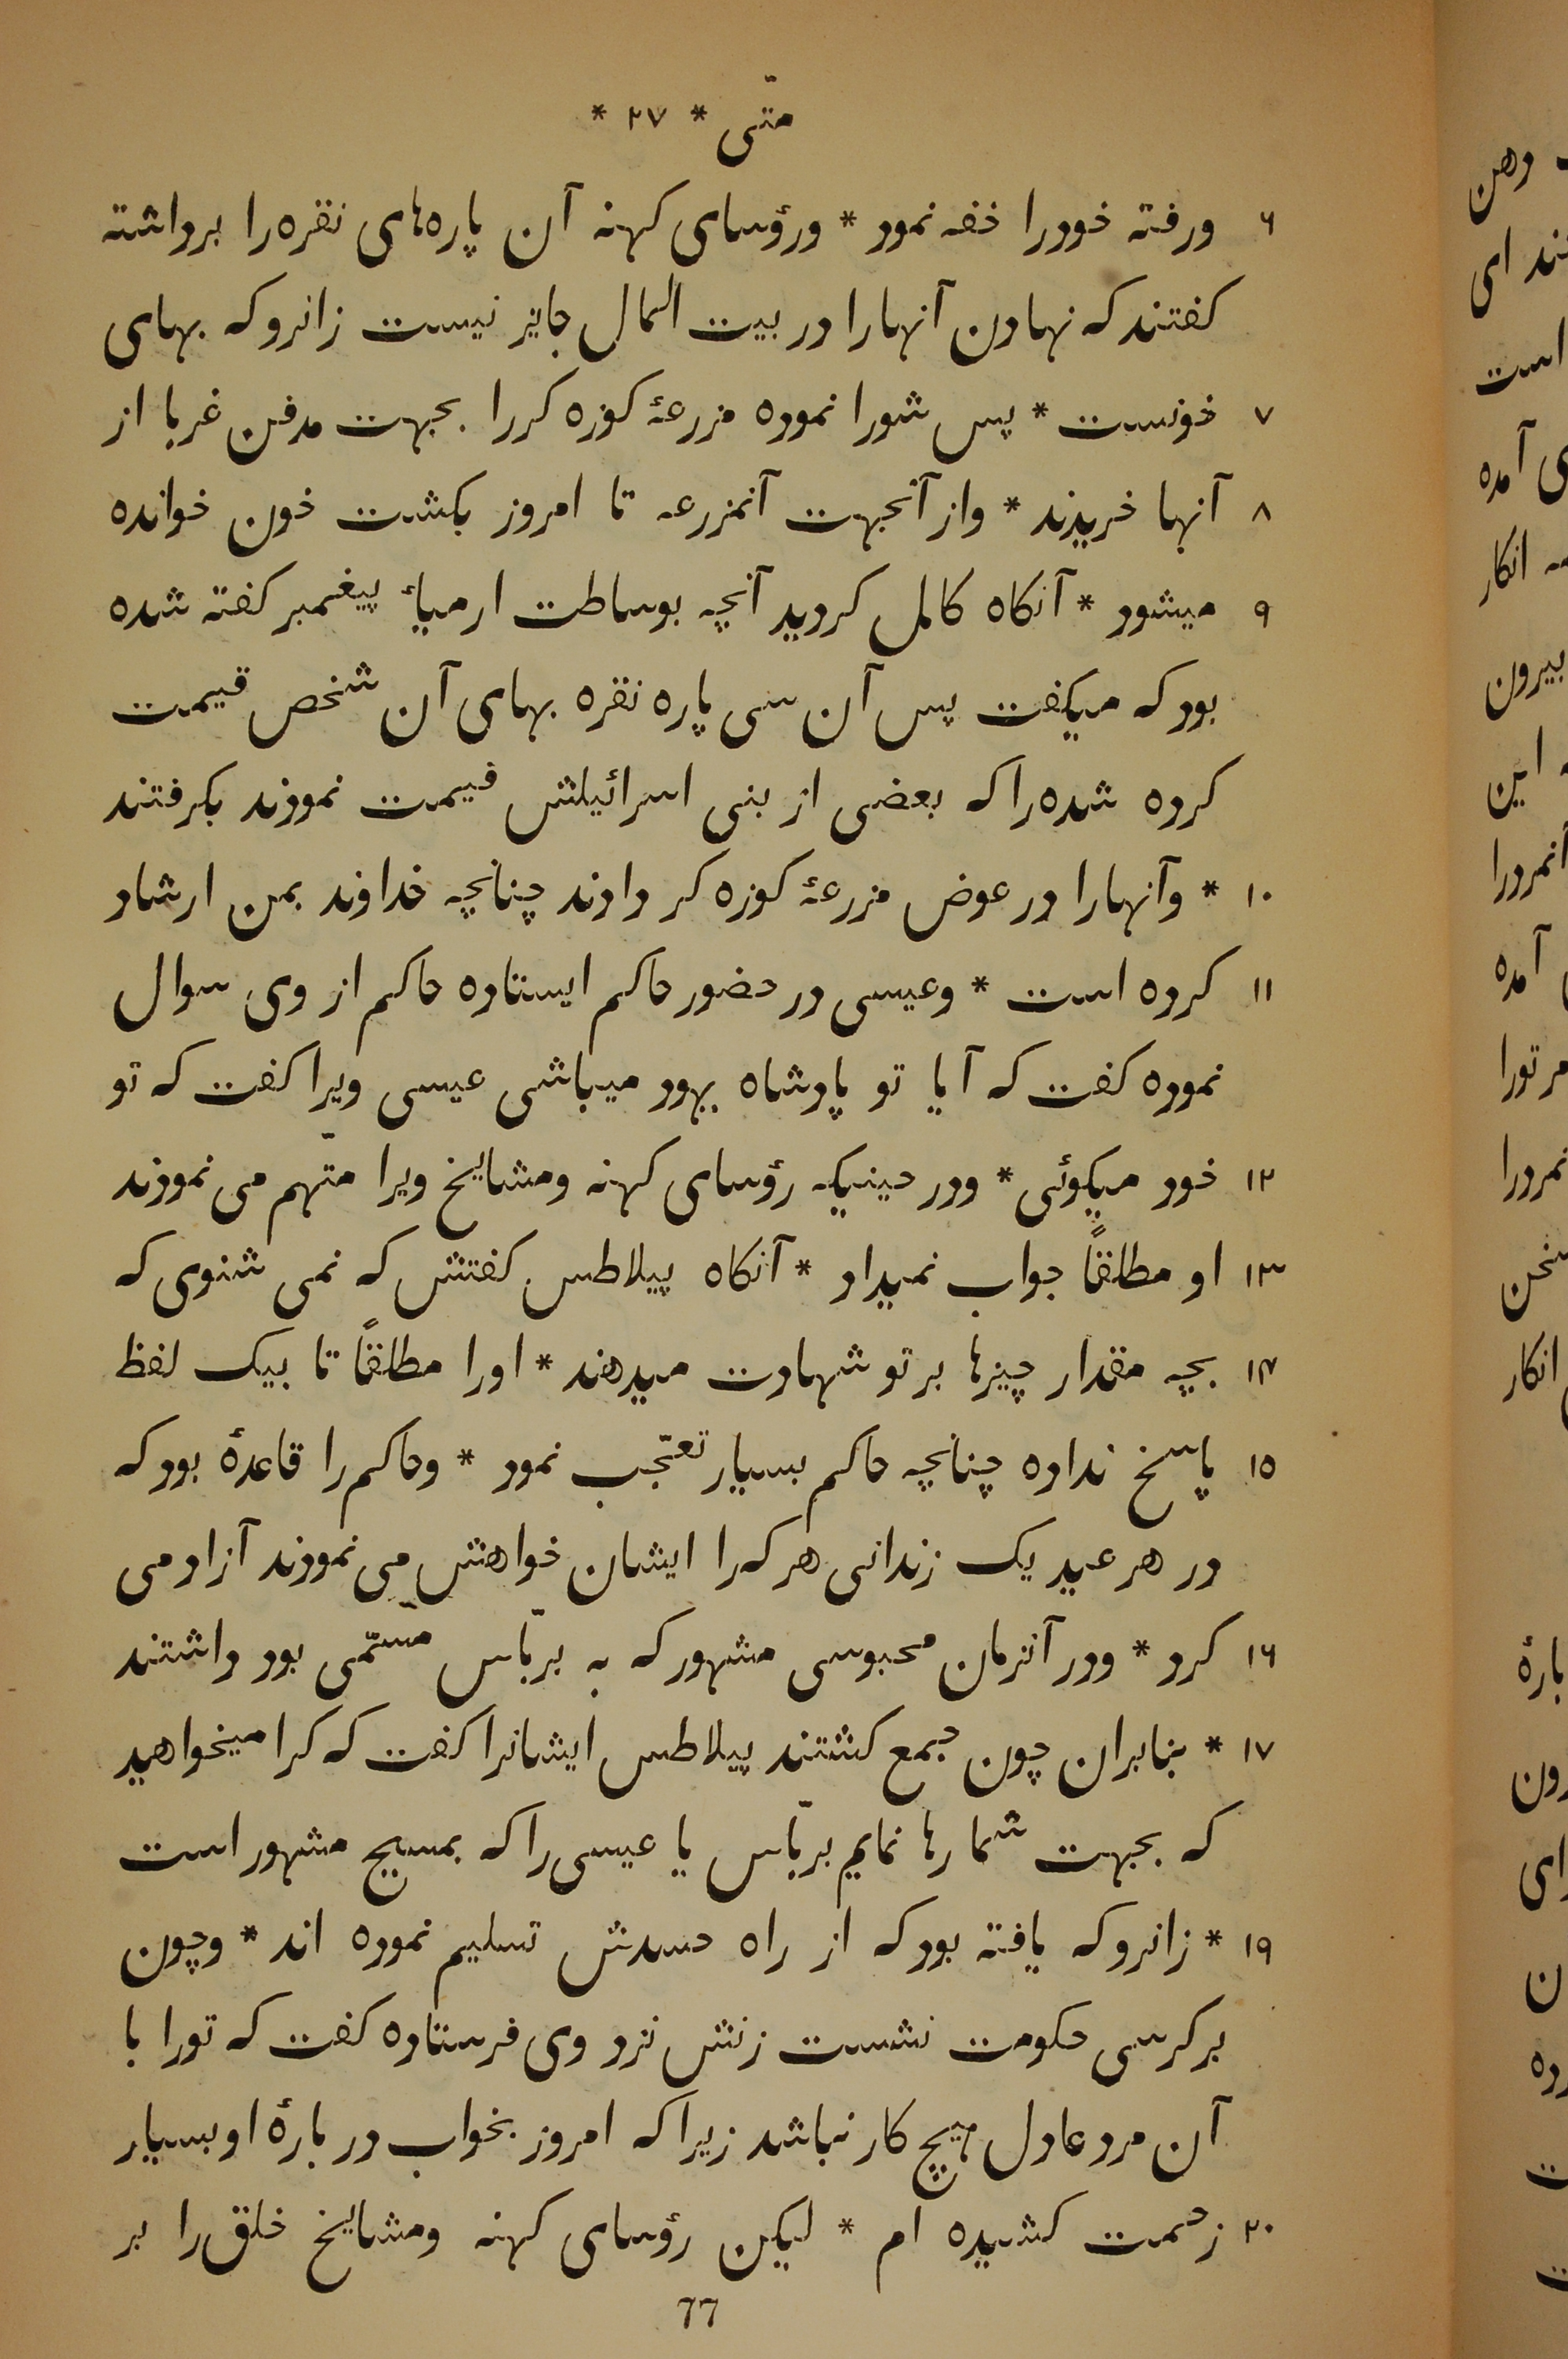 متّی * ٢٧ *
٦ ورفته خودرا خفه نمود * ورؤسای کهنه آن پاره‌های نقره‌را برداشته
کفتند که نهادن آنهارا در بیت المال جایز نیست زانرو که بهای
٧ خونست * پس شورا نموده مزرعهٔ کوزه کررا بجهت مدفن غربا از
٨ آنها خریدند * واز آنجهت آنمزرعه تا امروز بکشت خون خوانده
٩ میشود * آنکاه کامل کردید آنچه بوساطت ارمیاءٔ پیغمبر کفته شده
بود که میکفت پس آن سی پاره نقره بهای آن شخص قیمت
کرده شده‌را که بعضی از بنی اسرائیلش قیمت نمودند بکرفتند
١٠ * وآنهارا در عوض مزرعهٔ کوزه کر دادند چنانچه خداوند بمن ارشاد
١١ کرده است * وعیسی در حضور حاکم ایستاده حاکم از وی سوال
نموده کفت که آیا تو پادشاه یهود میباشی عیسی ویرا کفت که تو
١٢ خود میکوئی * ودر حینیکه رؤسای کهنه ومشایخ ویرا متّهم می نمودند
١٣ او مطلقاً جواب نمیداد * آنکاه پیلاطس کفتش که نمی شنوی که
١٤ بچه مقدار چیزها بر تو شهادت میدهند * اورا مطلقاً تا بیک لفظ
١٥ پاسخ نداده چنانچه حاکم بسیار تعجّب نمود * وحاکم‌را قاعدهٔ بود که
در هر عید یک زندانی هر که‌را ایشان خواهش می نمودند آزاد می
١٦ کرد * ودر آنزمان محبوسی مشهور که به برّباس مسمّی بود داشتند
١٧ * بنابران چون جمع کشتند پیلاطس ایشانرا کفت که کرا میخواهید
که بجهت شما رها نمایم برّباس یا عیسی‌را که بمسیح مشهور است
١٩ * زانرو که یافته بود که از راه حسدش تسلیم نموده اند * وچون
بر کرسی حکومت نشست زنش نزد وی فرستاده کفت که تورا با
آن مرد عادل هیچ کار نباشد زیرا که امروز بخواب در بارهٔ او بسیار
٢٠ زحمت کشیده ام * لیکن رؤسای کهنه ومشایخ خلق‌را بر
77